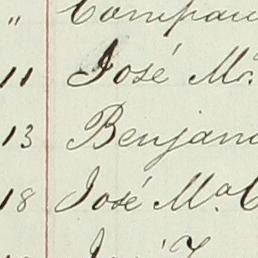 " Compan
11 José Ma.
13 Benjam
18 José Ma. C
José